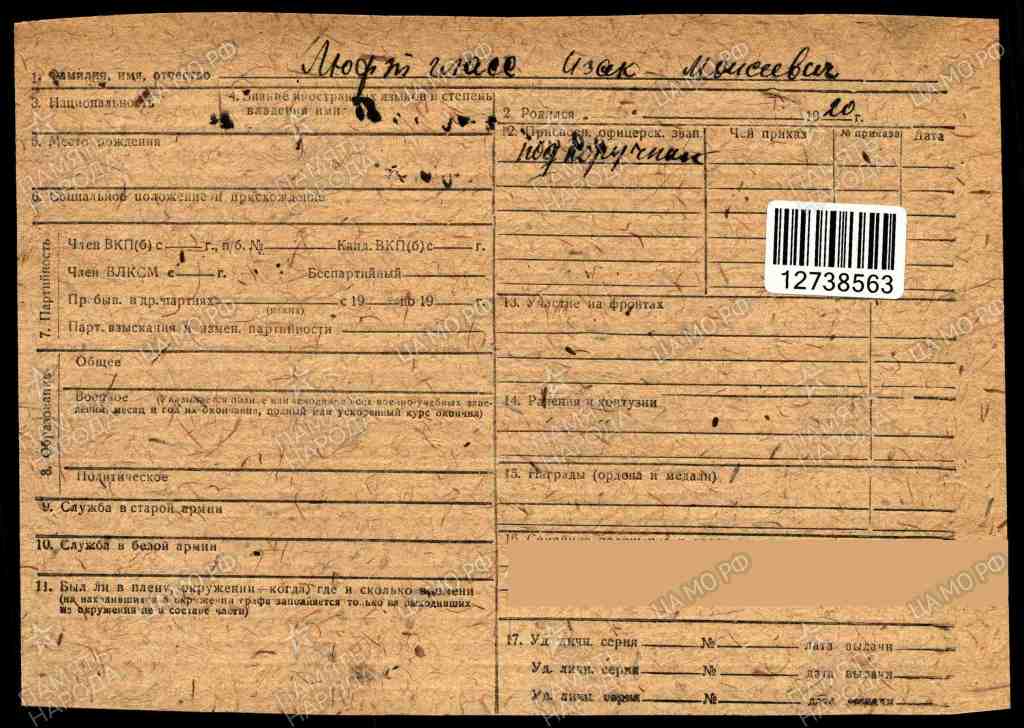 1. Фамилия, имя, отчество Люфтгласс Изак Моисеевич
3. Национальность
4. Знание иностранных языков и степень
владения ими
2. Родился 1920 г.
5. Место рождения
6. Социальное положение и происхождение
7. Партийность
Член ВКП(б) с г., п/б. № Канд. ВКП(б) с г.
Член ВЛКСМ с г. Беспартийный
Пр быв. в др. партиях с 19 по 19 г.
(каких)
Парт. взыскания и измен. партийности
8. Образование
Общее
Военное (Указывается полное или
военно-учебных заве-
дений, месяц и год их окончания, полный или ускоренный курс окончил)
Политическое
9. Служба в старой армии
10. Служба в белой армии
11. Был ли в плену, окружении—когда, где и сколько времени
(на находившихся в окружении графа заполняется только на выходивших
из окружения не в составе части)
12. Присвоен. офицерск. зван. Чей приказ № приказа Дата
подпоручник
12738563
13. Участие на фронтах
14. Ранения и контузии
15. Награды (ордена и медали)
17. Уд. личн. серия № дата выдачи
Уд. личн. серия № дата выдачи
Уд. личн. серия № дата выдачи
ЦАМО.РФ
ПАМЯТЬ
НАРОДА